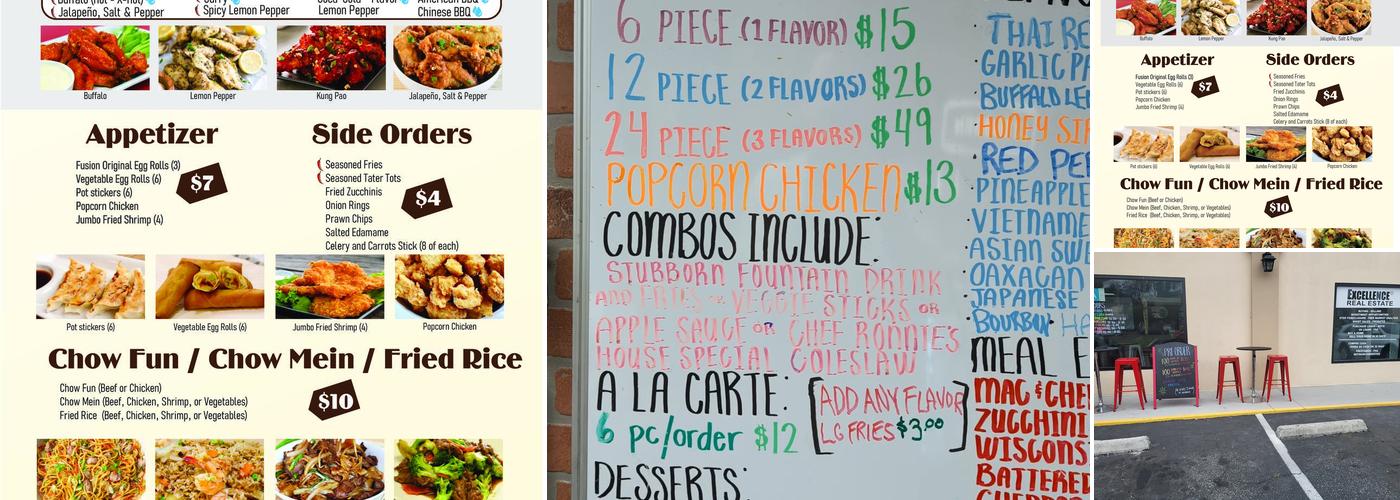 Jalapeño, Salt & Pepper
Spicy Lemon Pepper
Lemon Pepper
Chinese BBQ
Buffalo
Lemon Pepper
Kung Pao
Jalapeño, Salt & Pepper
Appetizer
Fusion Original Egg Rolls (3)
Vegetable Egg Rolls (6)
Pot stickers (6)
Popcorn Chicken
Jumbo Fried Shrimp (4)
$7
Side Orders
Seasoned Fries
Seasoned Tater Tots
Fried Zucchinis
Onion Rings
Prawn Chips
Salted Edamame
Celery and Carrots Stick (8 of each)
$4
Pot stickers (6)
Vegetable Egg Rolls (6)
Jumbo Fried Shrimp (4)
Popcorn Chicken
Chow Fun / Chow Mein / Fried Rice
Chow Fun (Beef or Chicken)
Chow Mein (Beef, Chicken, Shrimp, or Vegetables)
Fried Rice (Beef, Chicken, Shrimp, or Vegetables)
$10
6 PIECE (1 FLAVOR) $15
12 PIECE (2 FLAVORS) $26
24 PIECE (3 FLAVORS) $49
POPCORN CHICKEN $13
COMBOS INCLUDE:
STUBBORN FOUNTAIN DRINK
AND FRIES OR VEGGIE STICKS OR
APPLE SAUCE OR CHEF RONNIE'S
HOUSE SPECIAL COLESLAW
A LA CARTE:
6 pc/order $12
[ADD ANY FLAVOR
LG FRIES $3.00]
DESSERTS:
THAI RE
GARLIC PA
BUFFALO LE
HONEY SIR
RED PEP
PINEAPPLE
VIETNAME
ASIAN SWE
OAXACAN
JAPANESE
BOURBON HA
MEAL E
MAC & CHE
ZUCCHINI
WISCONS
BATTERED
Buffalo
Lemon Pepper
Kung Pao
Jalapeño, Salt & Pepper
Appetizer
Fusion Original Egg Rolls (3)
Vegetable Egg Rolls (6)
Pot stickers (6)
Popcorn Chicken
Jumbo Fried Shrimp (4)
$7
Side Orders
Seasoned Fries
Seasoned Tater Tots
Fried Zucchinis
Onion Rings
Prawn Chips
Salted Edamame
Celery and Carrots Stick (8 of each)
$4
Pot stickers (6)
Vegetable Egg Rolls (6)
Jumbo Fried Shrimp (4)
Popcorn Chicken
Chow Fun / Chow Mein / Fried Rice
Chow Fun (Beef or Chicken)
Chow Mein (Beef, Chicken, Shrimp, or Vegetables)
Fried Rice (Beef, Chicken, Shrimp, or Vegetables)
$10
EXCELLENCE
REAL ESTATE
PRE ORDER